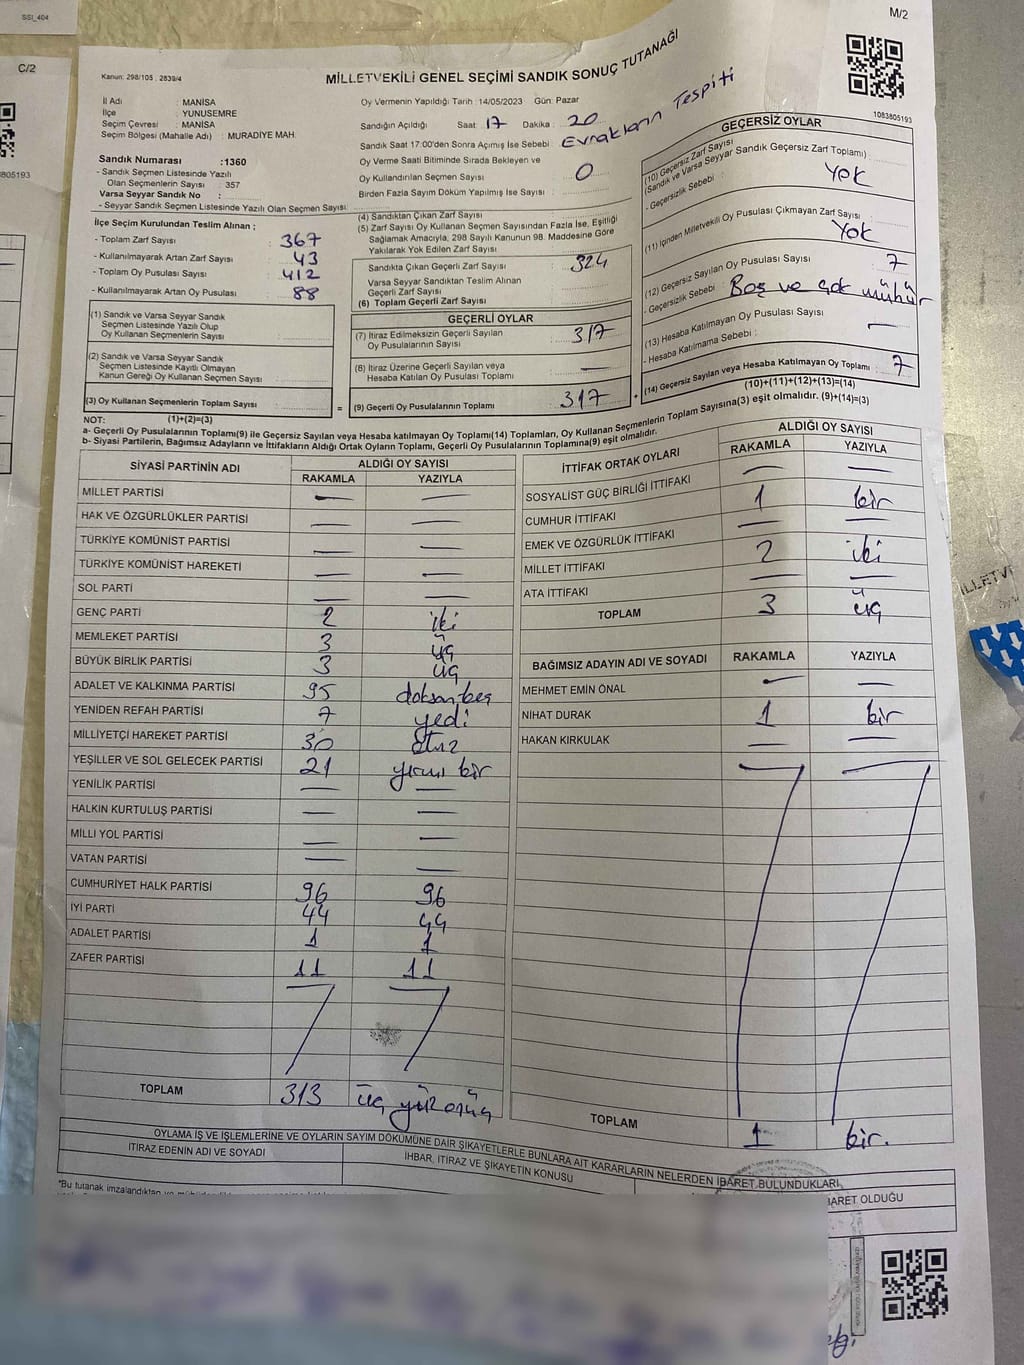 SSI_404
C/2
M/2
Kanun: 298/105 , 2839/4
MİLLETVEKİLİ GENEL SEÇİMİ SANDIK SONUÇ TUTANAĞI
1083805193
805193
İl Adı : MANİSA
İlçe : YUNUSEMRE
Seçim Çevresi : MANİSA
Seçim Bölgesi (Mahalle Adı) : MURADİYE MAH.
Sandık Numarası :1360
- Sandık Seçmen Listesinde Yazılı
Olan Seçmenlerin Sayısı : 357
Varsa Seyyar Sandık No :
- Seyyar Sandık Seçmen Listesinde Yazılı Olan Seçmen Sayısı:
Oy Vermenin Yapıldığı Tarih : 14/05/2023 Gün: Pazar
Sandığın Açıldığı Saat : 17 Dakika : 20
Sandık Saat 17:00'den Sonra Açımış İse Sebebi : Evrakların Tespiti
Oy Verme Saati Bitiminde Sırada Bekleyen ve
Oy Kullandırılan Seçmen Sayısı : 0
Birden Fazla Sayım Döküm Yapılmış İse Sayısı :
İlçe Seçim Kurulundan Teslim Alınan ;
- Toplam Zarf Sayısı : 367
- Kullanılmayarak Artan Zarf Sayısı : 43
- Toplam Oy Pusulası Sayısı : 412
- Kullanılmayarak Artan Oy Pusulası : 88
(1) Sandık ve Varsa Seyyar Sandık
Seçmen Listesinde Yazılı Olup
Oy Kullanan Seçmenlerin Sayısı :
(2) Sandık ve Varsa Seyyar Sandık
Seçmen Listesinde Kayıtlı Olmayan
Kanun Gereği Oy Kullanan Seçmen Sayısı :
(3) Oy Kullanan Seçmenlerin Toplam Sayısı :
(1)+(2)=(3)
(4) Sandıktan Çıkan Zarf Sayısı
(5) Zarf Sayısı Oy Kullanan Seçmen Sayısından Fazla İse, Eşitliği
Sağlamak Amacıyla, 298 Sayılı Kanunun 98. Maddesine Göre
Yakılarak Yok Edilen Zarf Sayısı :
Sandıkta Çıkan Geçerli Zarf Sayısı : 324
Varsa Seyyar Sandıktan Teslim Alınan
Geçerli Zarf Sayısı :
(6) Toplam Geçerli Zarf Sayısı :
GEÇERLİ OYLAR
(7) İtiraz Edilmeksizin Geçerli Sayılan
Oy Pusulalarının Sayısı : 317
(8) İtiraz Üzerine Geçerli Sayılan veya
Hesaba Katılan Oy Pusulası Toplamı : —
= (9) Geçerli Oy Pusulalarının Toplamı : 317 +
GEÇERSİZ OYLAR
(10) Geçersiz Zarf Sayısı
(Sandık ve Varsa Seyyar Sandık Geçersiz Zarf Toplamı) : Yok
- Geçersizlik Sebebi :
(11) İçinden Milletvekili Oy Pusulası Çıkmayan Zarf Sayısı : Yok
(12) Geçersiz Sayılan Oy Pusulası Sayısı : 7
- Geçersizlik Sebebi : Boş ve çok mühür
(13) Hesaba Katılmayan Oy Pusulası Sayısı : —
- Hesaba Katılmama Sebebi :
(14) Geçersiz Sayılan veya Hesaba Katılmayan Oy Toplamı : 7
(10)+(11)+(12)+(13)=(14)
NOT:
a- Geçerli Oy Pusulalarının Toplamı(9) ile Geçersiz Sayılan veya Hesaba katılmayan Oy Toplamı(14) Toplamları, Oy Kullanan Seçmenlerin Toplam Sayısına(3) eşit olmalıdır. (9)+(14)=(3)
b- Siyasi Partilerin, Bağımsız Adayların ve İttifakların Aldığı Ortak Oyların Toplamı, Geçerli Oy Pusulalarının Toplamına(9) eşit olmalıdır.
SİYASİ PARTİNİN ADI ALDIĞI OY SAYISI
RAKAMLA YAZIYLA
MİLLET PARTİSİ — —
HAK VE ÖZGÜRLÜKLER PARTİSİ — —
TÜRKİYE KOMÜNİST PARTİSİ — —
TÜRKİYE KOMÜNİST HAREKETİ — —
SOL PARTİ — —
GENÇ PARTİ 2 iki
MEMLEKET PARTİSİ 3 üç
BÜYÜK BİRLİK PARTİSİ 3 üç
ADALET VE KALKINMA PARTİSİ 95 doksan beş
YENİDEN REFAH PARTİSİ 7 yedi
MİLLİYETÇİ HAREKET PARTİSİ 30 otuz
YEŞİLLER VE SOL GELECEK PARTİSİ 21 yirmi bir
YENİLİK PARTİSİ — —
HALKIN KURTULUŞ PARTİSİ — —
MİLLİ YOL PARTİSİ — —
VATAN PARTİSİ — —
CUMHURİYET HALK PARTİSİ 96 96
İYİ PARTİ 44 44
ADALET PARTİSİ 1 1
ZAFER PARTİSİ 11 11
TOPLAM 313 üç yüz onüç
İTTİFAK ORTAK OYLARI ALDIĞI OY SAYISI
RAKAMLA YAZIYLA
SOSYALİST GÜÇ BİRLİĞİ İTTİFAKI — —
CUMHUR İTTİFAKI 1 bir
EMEK VE ÖZGÜRLÜK İTTİFAKI — —
MİLLET İTTİFAKI 2 iki
ATA İTTİFAKI — —
TOPLAM 3 üç
BAĞIMSIZ ADAYIN ADI VE SOYADI RAKAMLA YAZIYLA
MEHMET EMİN ÖNAL — —
NİHAT DURAK 1 bir
HAKAN KIRKULAK — —
TOPLAM 1 bir.
OYLAMA İŞ VE İŞLEMLERİNE VE OYLARIN SAYIM DÖKÜMÜNE DAİR ŞİKAYETLERLE BUNLARA AİT KARARLARIN NELERDEN İBARET BULUNDUKLARI
İTİRAZ EDENİN ADI VE SOYADI İHBAR, İTİRAZ VE ŞİKAYETİN KONUSU
İBARET OLDUĞU
"Bu tutanak imzalandıktan